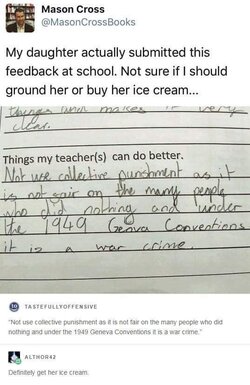 Mason Cross
@MasonCrossBooks
My daughter actually submitted this
feedback at school. Not sure if I should
ground her or buy her ice cream...
things and makes it very
clear.
Things my teacher(s) can do better.
Not use collective punishment as it
is not fair on the many people
who did nothing and under
the 1949 Geneva Conventions
it is a war crime.
TASTEFULLYOFFENSIVE
"Not use collective punishment as it is not fair on the many people who did
nothing and under the 1949 Geneva Conventions it is a war crime."
ALTHOR42
Definitely get her ice cream.